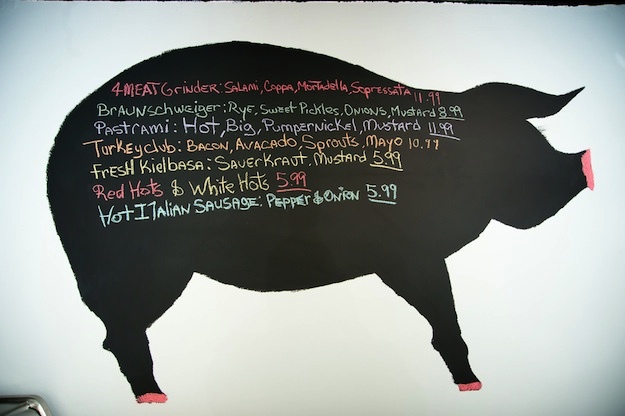 4 MEAT Grinder: Salami, Coppa, Mortadella, Sopressata 11.99
Braunschweiger: Rye, Sweet Pickles, Onions, Mustard 8.99
Pastrami: Hot, Big, Pumpernickel, Mustard 11.99
Turkey club: Bacon, Avacado, Sprouts, Mayo 10.99
Fresh Kielbasa: Sauerkraut, Mustard 5.99
Red Hots & White Hots 5.99
Hot Italian Sausage: Pepper & Onion 5.99